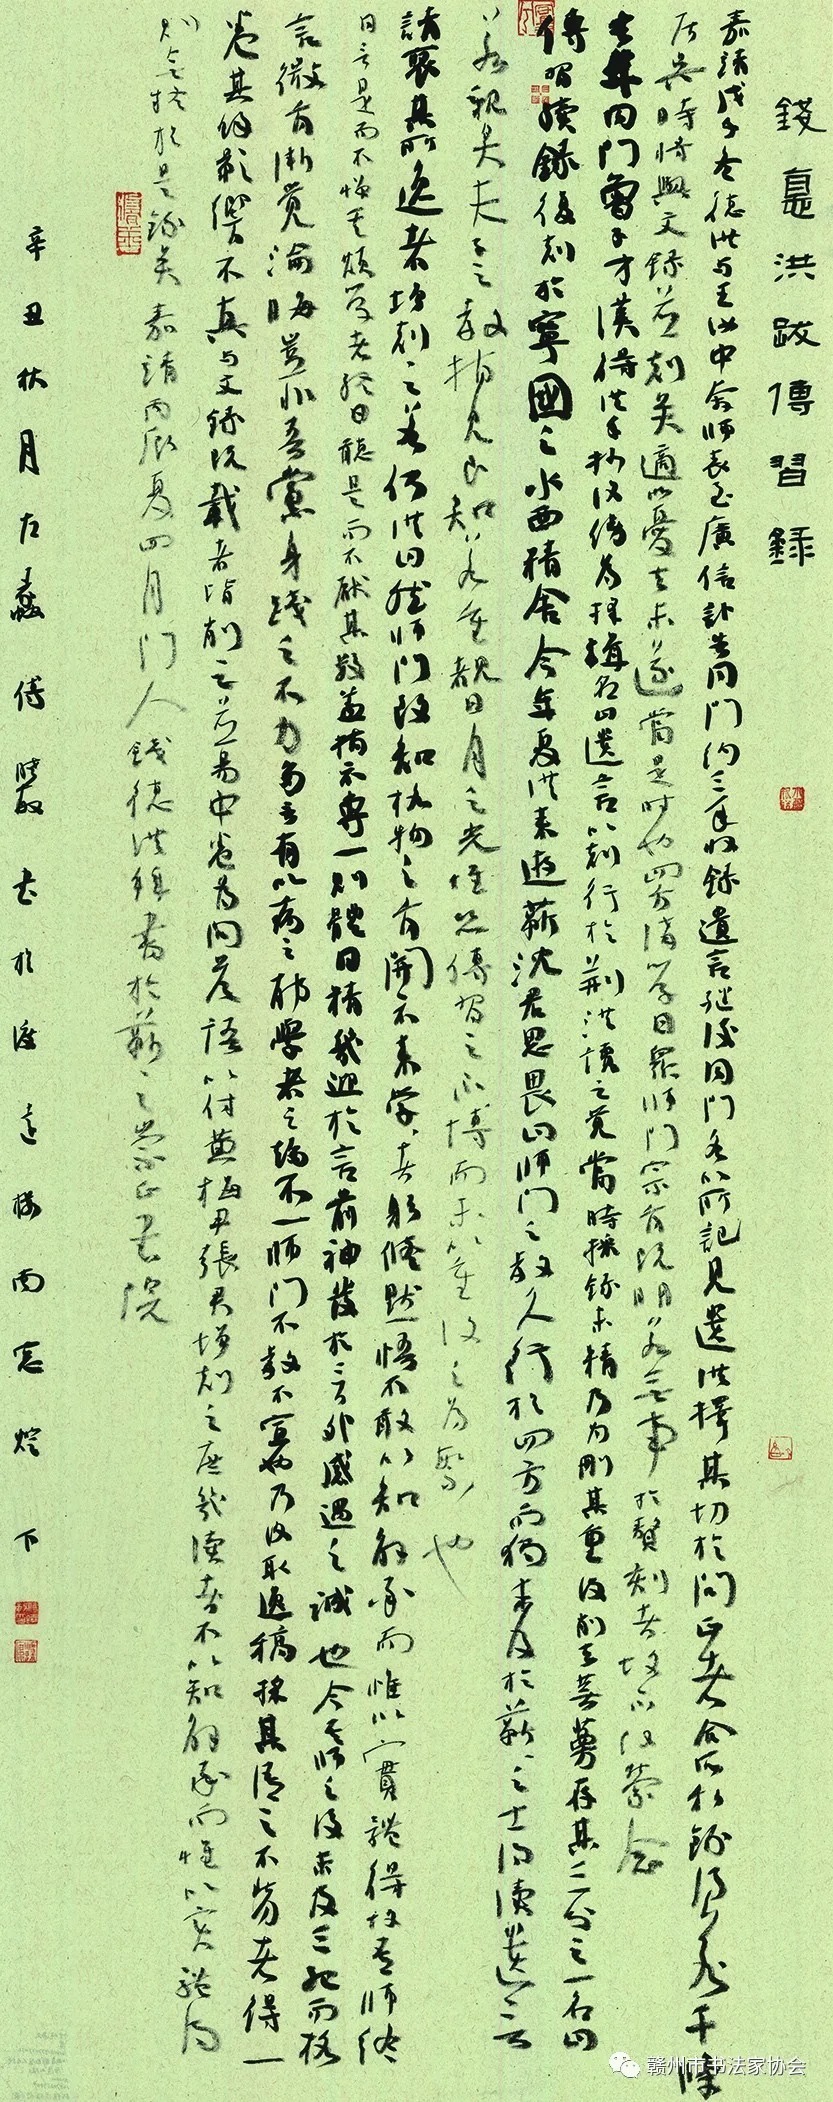 錢惪洪跋傳習錄
嘉靖戊子冬德洪与王汝中奔師喪至廣信訃告同門約三年收錄遺言继後同門各以所記見遺洪擇其切於問正者合所私錄得若干條
居吳時將與文錄並刻矣適以憂去未遂當是时也四方講学日眾师门宗旨既明若無事於贅刻者故不復縈念
去年同門曾子才漢得洪手抄復傍為採輯名曰遺言以刻行於荆洪讀之覺當時採錄未精乃为刪其重復削去蕪蔓存其三分之一名曰
傳習續錄復刻於寧國之水西精舍今年夏洪來遊蘄沈君思畏曰师门之教人行於四方而獨未及於蘄蘄之士得讀遺言
若親炙夫子之教指見良知若重覩日月之光惟恐傳習之不博而未以重復之为繁也
請裒其所逸者增刻之若何洪曰然师门致知格物之旨開示來学学者躬修默悟不敢以知解承而惟以實體得故吾师終
日言是而不憚其煩学者終日聽是而不厭其數盖指示專一则體日精幾迎於言前神發於言外感遇之誠也今吾师之没未及三纪而格
言微旨漸覺淪晦豈非吾黨身踐之不力多言有以病之耶學者之趨不一师门之教不宣也乃復取逸稿採其語之不背者得一
卷其餘影響不真与文錄既載者皆削之並易中卷为问答語以付黄梅尹張君增刻之庶幾讀者不以知解承而惟以实體得
则無疑於是錄矣嘉靖丙辰夏四月门人錢德洪拜書於蘄之崇正書院
辛丑秋月左蠡傅晓 书於 遠樓南窓燈下
赣州市书法家协会